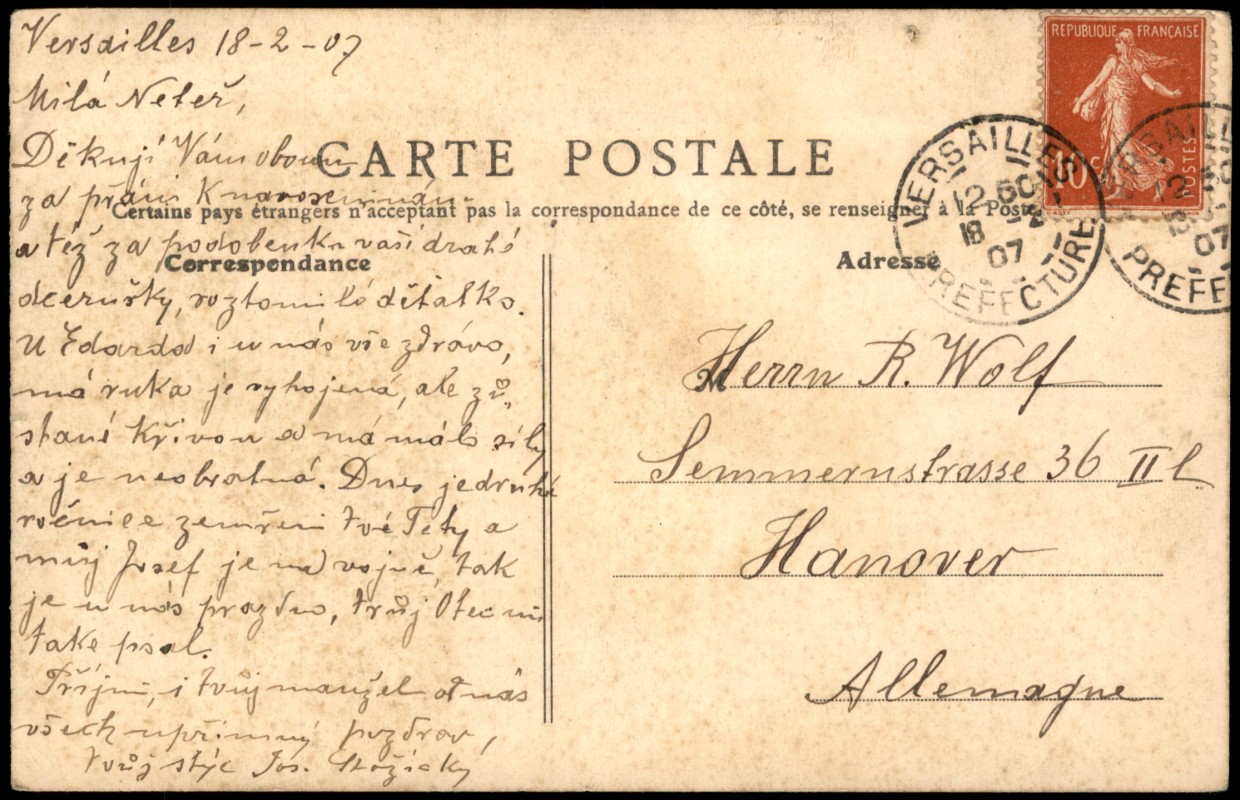 Versailles 18-2-07
Milá Neteř,
Děkuji Vám oboum
za přání K narozeninám
a též za podobenku vaší drahé
dcerušky, roztomilé děťátko.
U Edarda i u nás vše zdrávo,
má ruka je vyhojená, ale zů„
stane křivou a má málo síly
a je neobratná. Dnes je druhé
ročnice zemření tvé Tety a
můj Josef je na vojně, tak
je u nás prazdno, tvůj Otec mi
take psal.
Přijmi, i tvůj manžel od nás
všech upřimný pozdrav,
tvůj stýc Jos.
CARTE POSTALE
Certains pays étrangers n'acceptent pas la correspondance de ce côté, se renseigner à la Poste
Correspondance
Adresse
REPUBLIQUE FRANÇAISE
10c
POSTES
VERSAILLES
12 50
18 -2
07
PREFECTURE
VERSAILLES
12
18
07
PREFE
Herrn R. Wolf
Semmernstrasse 36 II l
Hanover
Allemagne